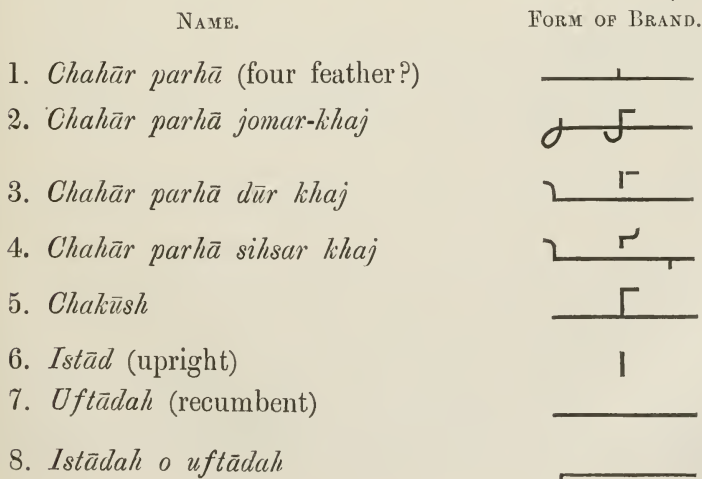 NAME. FORM OF BRAND.
1. Chahār parhā (four feather?)
2. Chahār parhā jomar-khaj
3. Chahār parhā dūr khaj
4. Chahār parhā sihsar khaj
5. Chakūsh
6. Istād (upright)
7. Uftādah (recumbent)
8. Istādah o uftādah